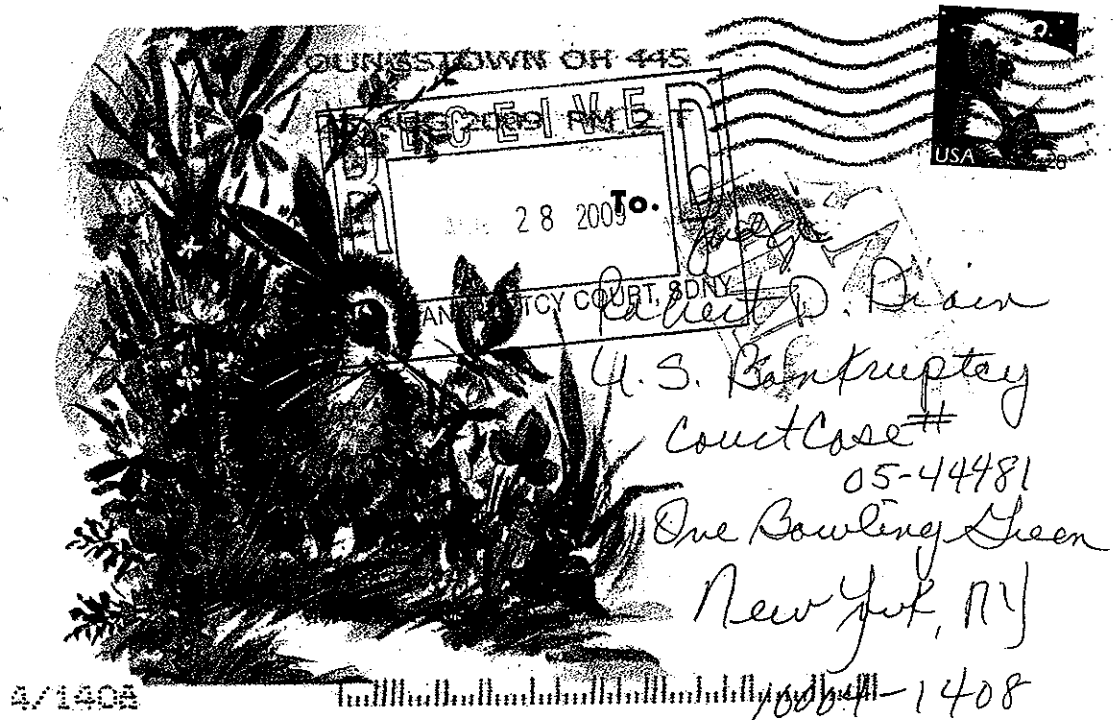 OUNGSTOWN OH 445
RECEIVED
2009 PM 2 T
28 2009
BANKRUPTCY COURT, SDNY
USA 28
To.
Judge
Robert D. Drain
U.S. Bankruptcy
Court Case #
05-44481
One Bowling Green
New York, NY
10004-1408
4/1408